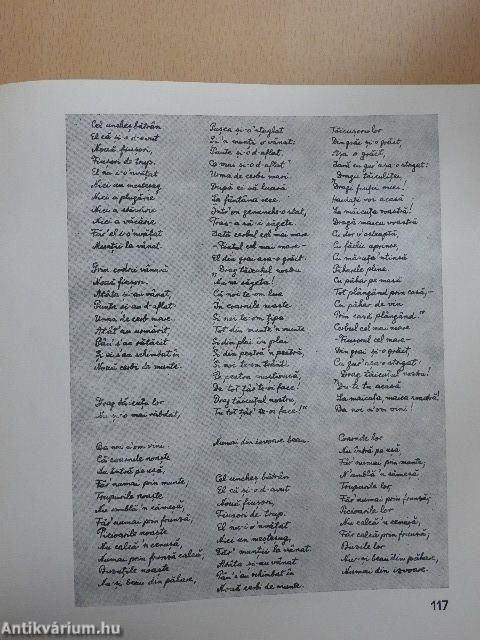 Cel unchieș bătrân
El că și-o d-avut
Nouă fiușori,
Fiușori de trup.
El nu i-o 'nvățat
Nici un meșteșug
Nici a plugărie
Nici a
Nici a văcărie
Făr' el i-o 'nvățat
Munții la vânat.
Prin codrii vânară
Nouă fiușori.
Atâta și-au vânat
Punte și-au d-aflat
Urmă de cerb mare.
Atât' au urmărit
Pân' s'au rătăcit
Și ei s'au schimbat în
Nouă cerbi de munte.
Drag tăicuța lor
Nu și-o mai răbdat,
Pușca și-o 'nteglat
Și 'n munți o vânat:
Punte și-o d-aflat.
Ce mai și-o d-aflat?
Urmă de cerbi mari.
După ei să luară
La fântână rece.
Într'un genunche o stat,
Tras-a să-i săgete.
Iată cerbul cel mai mare
- Fiutul cel mai mare -
El din grai așa o grăit:
„ Drag tăicuțul nostru
Nu ne săgeta!
Că noi te-om lua
În coarnele noaste
Și noi te-om țipa
Tot din munte 'n munte
Și din plai în plai
Și din peatră 'n peatră,
Și noi te-om trânti
Pe peatră
De tot făr' te-oi face!
Drag tăicuțul nostru,
Tu tot făr' te-oi face!"
Tăicușoru lor
Din grai și-o grăit,
Așa o grăit,
Dacă cu gur' așa-o strigat:
„Dragii tăicuțului,
Dragi fiuții mei!
Haidați voi acasă
La măicuța voastră!
Dragă maicu voastră
Cu dor v'așteaptă,
Cu făclii aprinse,
Cu măsuța 'ntinsă
Păharele pline.
Cu păhar pe masă
Tot plângând prin casă, -
Cu păhar de vin
Prin casă plângând."
Cerbul cel mai mare
- Fiușorul cel mare -
Din grai și-o grăit,
Cu gur' așa-o strigat:
„ Drag tăicuțul nostru!
Du-te tu acasă
La măicuța maica noastră!
Da noi n'om vini!
Da noi n'om vini:
Că coarnele noaste
Nu întră pe ușă,
Făr' numai prin munte,
Trupurile noaste
Nu umblă 'n cămeșă,
Făr' numai prin frunză,
Picioarele noaste
Nu calcă 'n cenușă,
Numai prin frunză calcă,
Buzuțele noaste
Nu-și beau din păhare,
Numai din izvoare beau.
Cel unchieș bătrân
El că și-o d-avut
Nouă fiușori,
Fiușori de trup.
El nu-i-o 'nvățat
Nici un meșteșug,
Făr' munții la vânat.
Atâta și-au vânat
Pân' s'au schimbat în
Nouă cerbi de munte.
Coarnele lor
Nu întră pe ușă,
Făr' numai prin munte,
N'umblă 'n cămeșă
Trupurile lor,
Făr' numai prin frunză;
Picioarele lor
Nu calcă 'n cenușă,
Făr' calcă prin frunză;
Buzele lor
Nu-și beau din păhare,
Numai din izvoare.
117
Antikvárium.hu